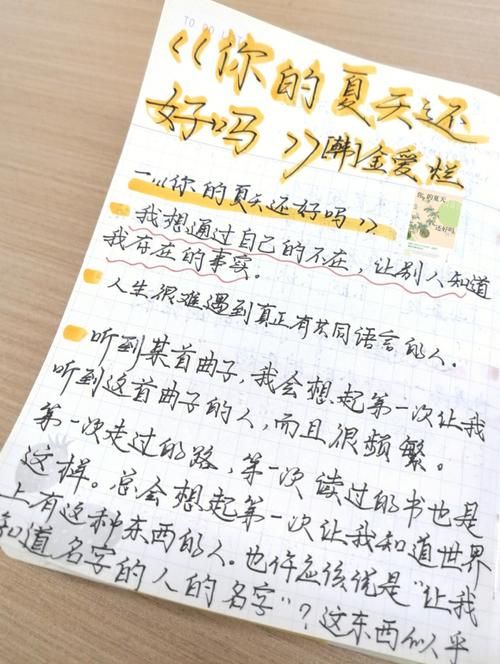 TO DO LIST
《《你的夏天还
好吗》》[韩]金爱烂
一.《《你的夏天还好吗》》
你的夏天
还好吗
我想通过自己的不在，让别人知道
我存在的事实。
人生很难遇到真正有共同语言的人.
听到某首曲子，我会想起第一次让我
听到这首曲子的人，而且很频繁。
第一次走过的路，第一次读过的书也是
这样。总会想起第一次让我知道世界
上有这种东西的人.也许应该说是“让我
知道名字的人的名字”？这东西似乎